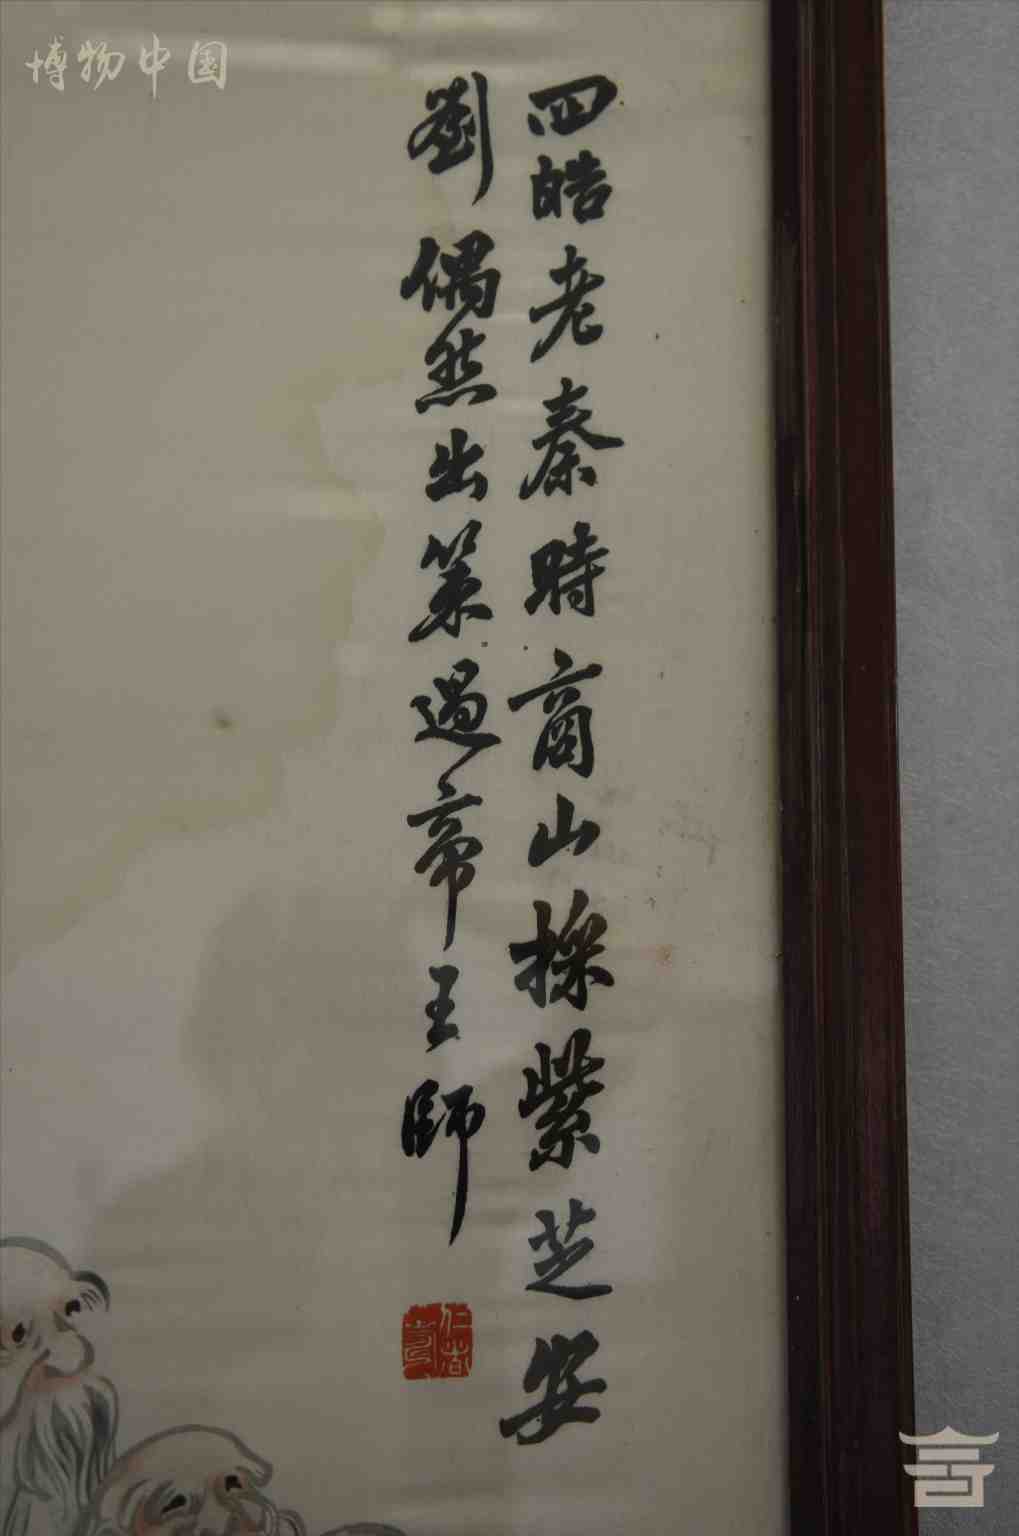 四皓老秦時商山採紫芝安
劉偶然出策過帝王師
仁者壽
博物中国